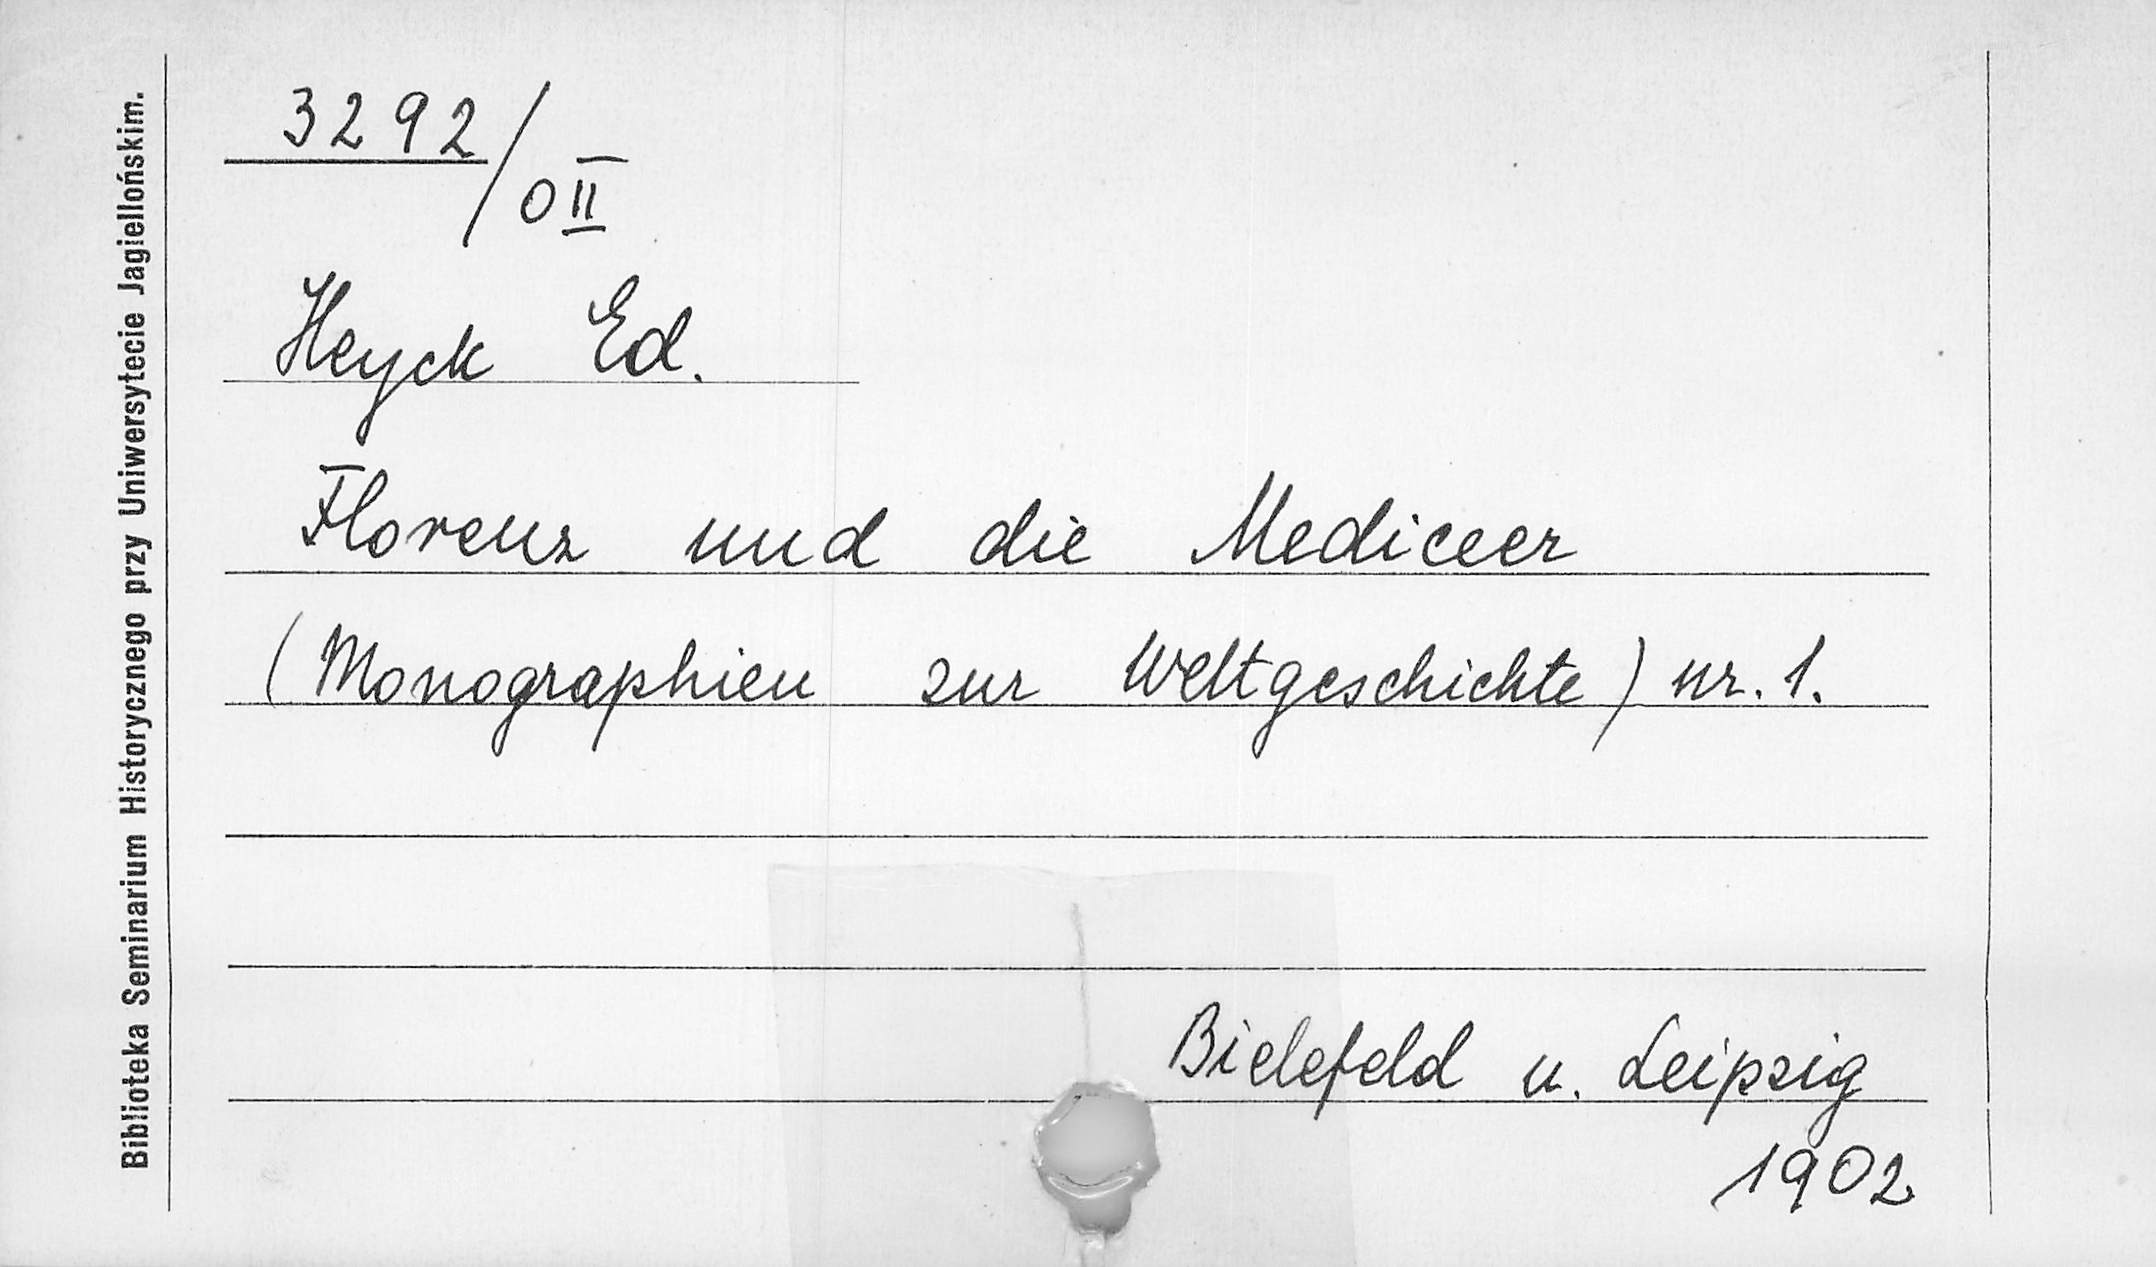 Biblioteka Seminarium Historycznego przy Uniwersytecie Jagiellońskim.
3292/
O II
Heyck Ed.
Florenz und die Mediceer
(Monographien zur Weltgeschichte) nr. 1.
Bielefeld u. Leipzig
1902